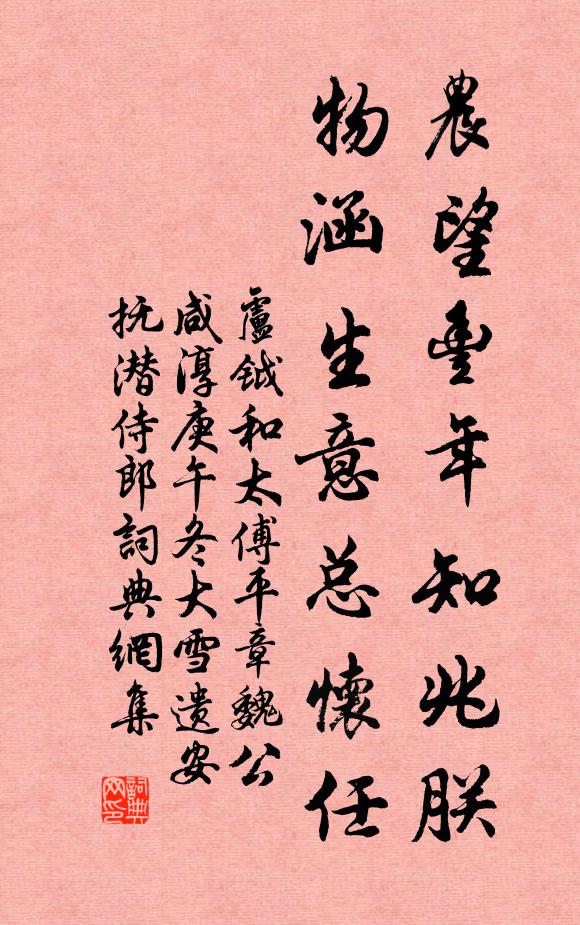 農望豐年知兆朕
物涵生意总懷任
盧鉞和太傅平章魏公
咸淳庚午冬大雪遗安
抚潜侍郎詞典網集
詞典网印